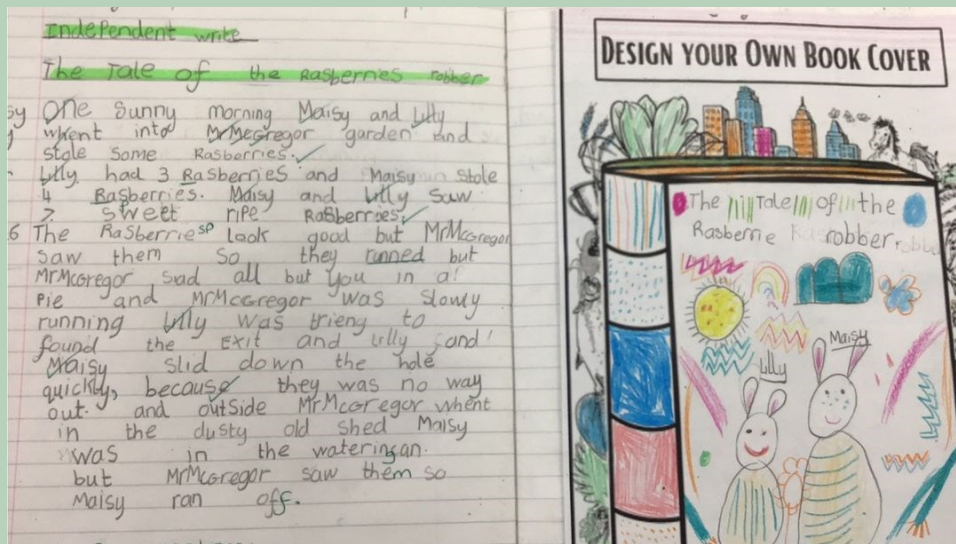 Independent write
The Tale of the Rasberries robber
One Sunny morning Maisy and Lilly
whent into MrMcgregor garden and
stole some Rasberries.
Lilly had 3 Rasberries and Maisy Stole
4 Rasberries. Maisy and Lilly Saw
7 sweet ripe Rasberries.
The Rasberrie sp look good but MrMcgregor
saw them so they runned but
MrMcgregor siad all but you in a!
Pie and MrMcgregor was slowly
running Lilly was trieng to
found the Exit and Lilly and
Maisy slid down the hole
quickly, because they was no way
out. and outside MrMcgregor whent
in the dusty old shed Maisy
was in the wateringan.
but MrMcgregor saw them so
Maisy ran off.
DESIGN YOUR OWN BOOK COVER
The Tale of the
Rasberrie robber
Maisy
Lilly